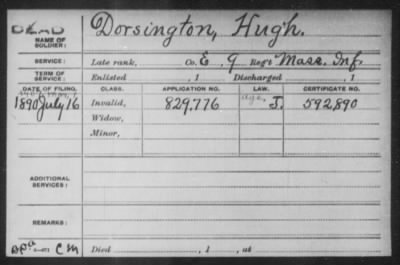 DEAD
NAME OF SOLDIER: Dorsington, Hugh.
SERVICE: Late rank, Co. E, 9 Reg't Mass. Inf.
TERM OF SERVICE: Enlisted , 1 Discharged , 1
DATE OF FILING. CLASS. APPLICATION NO. LAW. CERTIFICATE NO.
1890 July 16 Invalid, 829,776 age, J. 592,890
Widow,
Minor,
ADDITIONAL SERVICES:
REMARKS:
Died , 1 , at